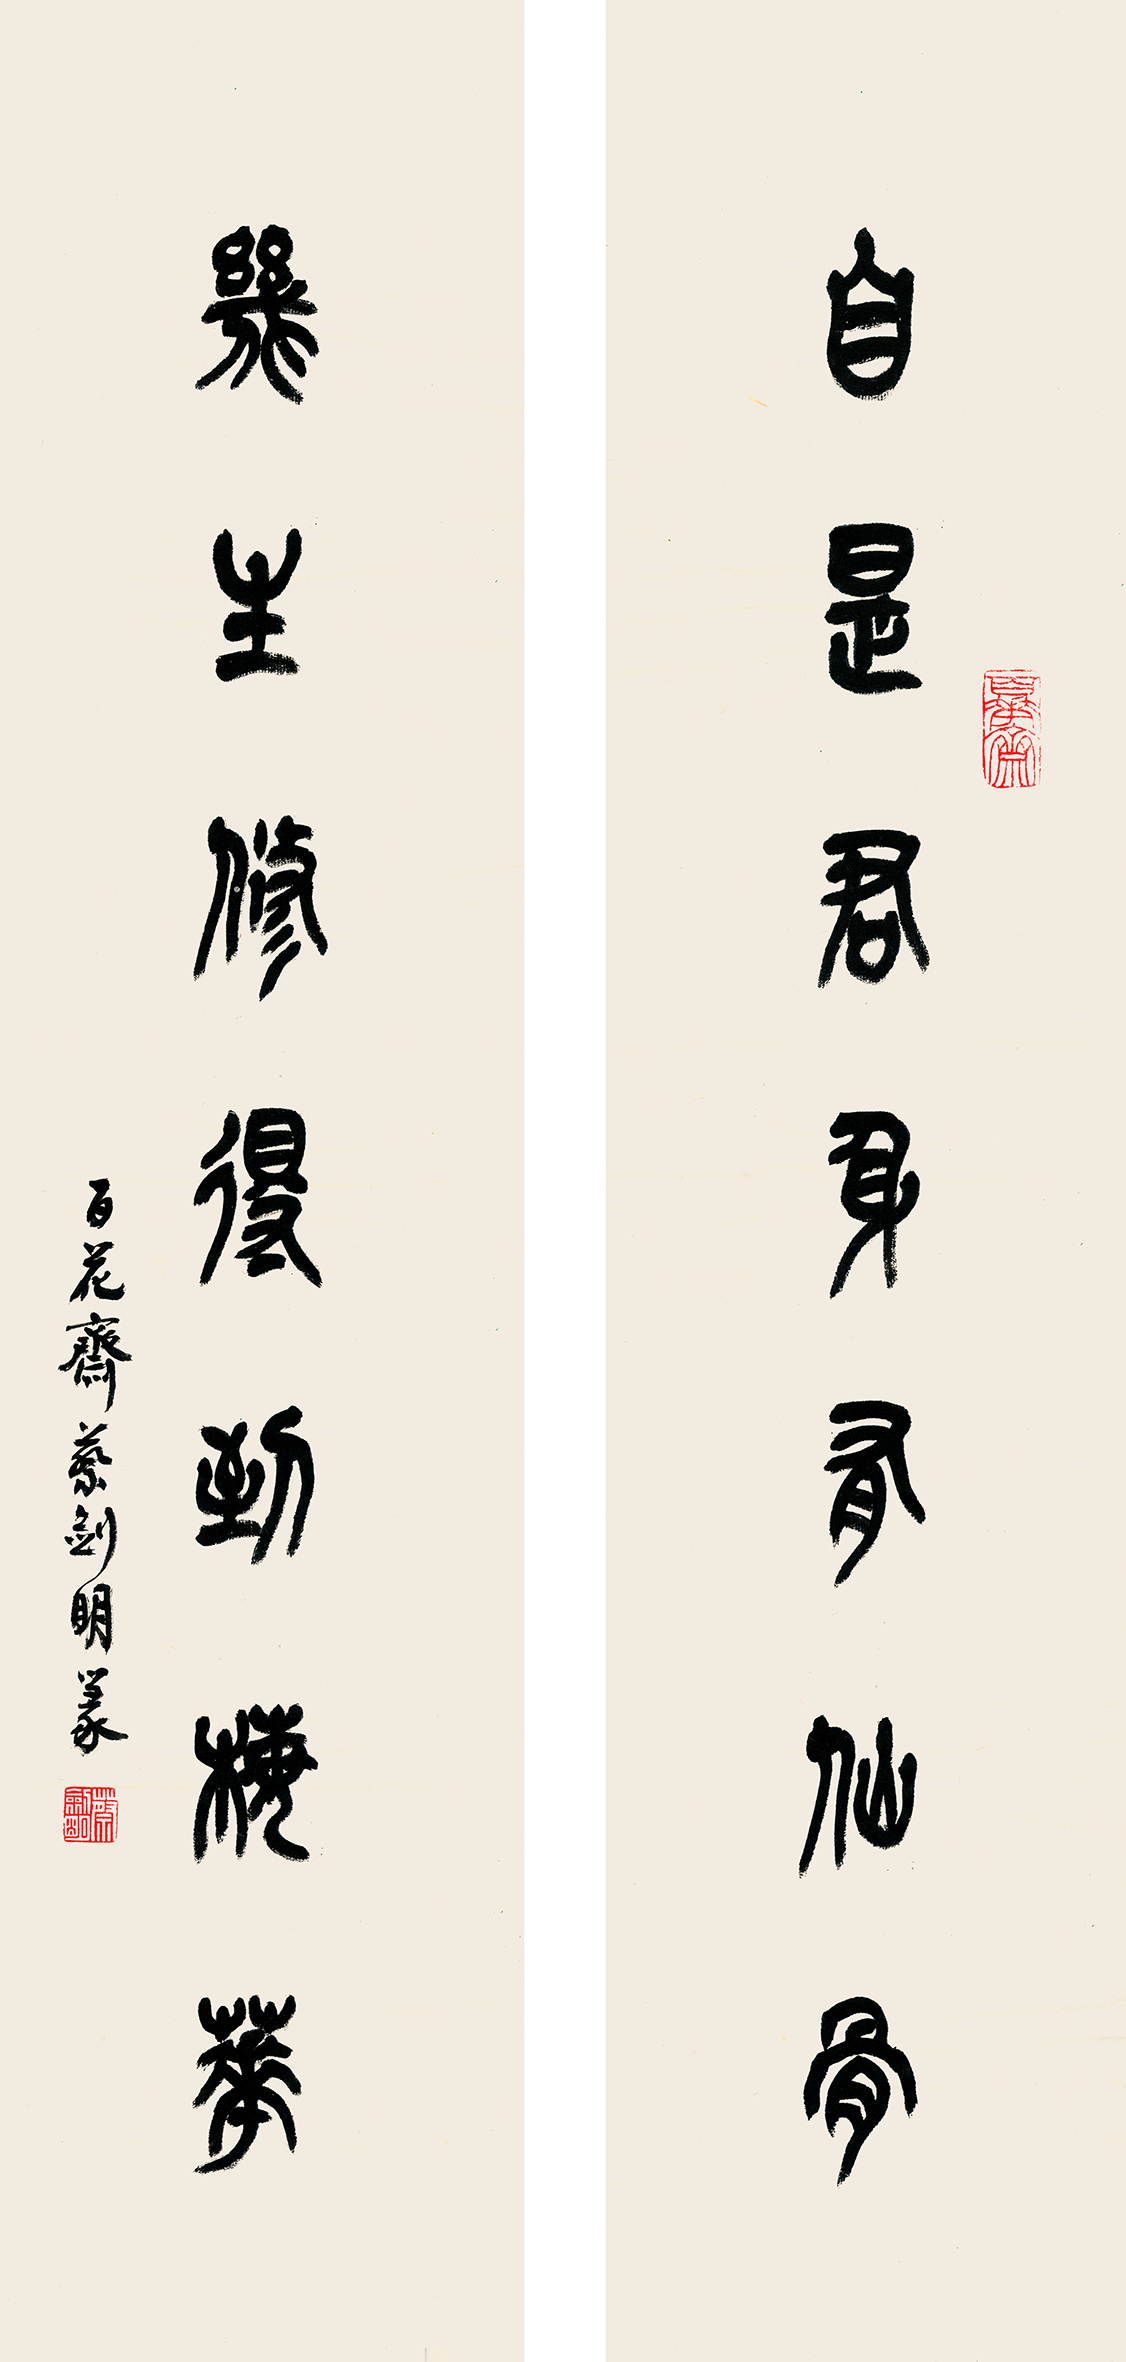 自是君身有仙骨
幾生修得到梅華
百花齋蔡劍明篆
百花齋